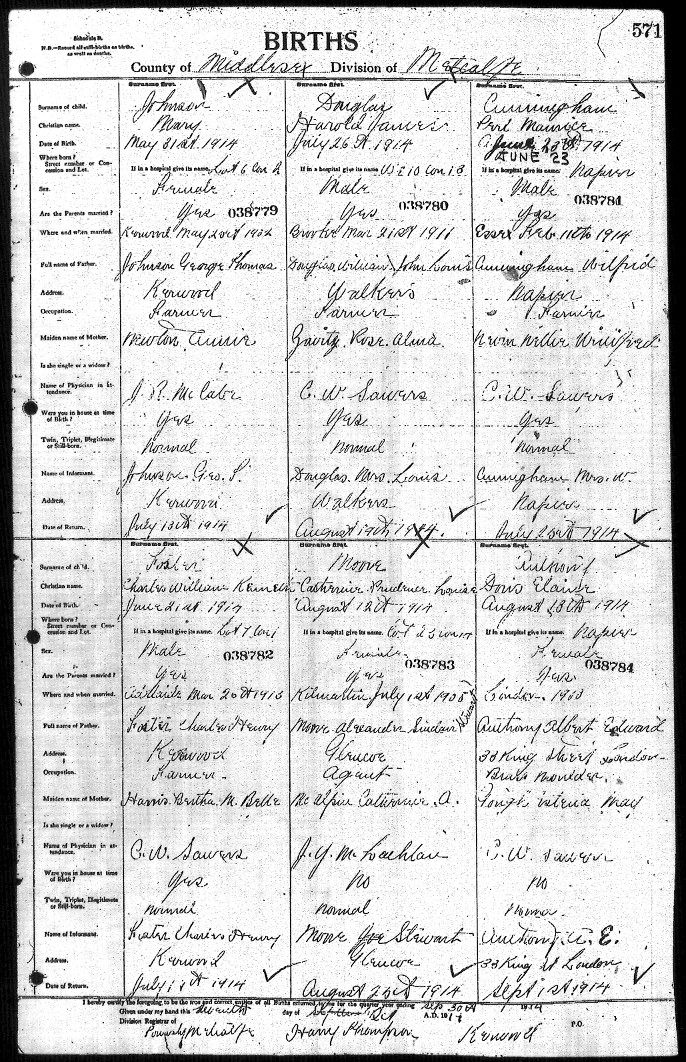 571
Schedule B.
N.B.—Record all still-births as births, as well as deaths.
BIRTHS
County of Middlesex Division of Metcalfe
Surname first. Surname first. Surname first.
Surname of child. Johnson Douglas Cunningham
Christian name. Mary Harold James Perl Maurice
Date of Birth. May 31st 1914 July 26th 1914 June 23rd 1914
JUNE 23
Where born? Street number or Concession and Lot. If in a hospital give its name. Lot 6 Con 2 If in a hospital give its name. If in a hospital give its name. Napier
Sex. Female Male Male
038779 038780 038781
Are the Parents married? Yes Yes Yes
Where and when married. Kerwood May 1902 Brooke Mar 21st 1911 Essex Feb 11th 1914
Full name of Father. Johnson George Thomas Douglas William John Louis Cunningham Wilfrid
Address. Kerwood Walkers Napier
Occupation. Farmer Farmer Farmer
Maiden name of Mother. Newton Annie Rose Alma Nellie Winifred
Is she single or a widow?
Name of Physician in attendance. McCabe C. W. Sawers C. W. Sawers
Were you in house at time of Birth? Yes Yes Yes
Twin, Triplet, Illegitimate or Still-born. Normal Normal Normal
Name of Informant. Johnson Geo. Douglas Mrs. Louis Cunningham Mrs. W.
Address. Kerwood Walkers Napier
Date of Return. July 13th 1914 August 19th 1914 July 1914
Surname first. Surname first. Surname first.
Surname of child. Foster Moore Anthony
Christian name. Charles William Kenneth Catherine Prudence Louise Doris Elaine
Date of Birth. June 21st 1914 August 12th 1914 August 1914
Where born? Street number or Concession and Lot. If in a hospital give its name. Lot 7 Con 1 If in a hospital give its name. If in a hospital give its name. Napier
Sex. Male Female Female
038782 038783 038784
Are the Parents married? Yes Yes Yes
Where and when married. Adelaide Mar 1913 Kilmartin July 1st London
Full name of Father. Foster Charles Henry Moore Alexander Sinclair Stewart Anthony Albert Edward
Address. Kerwood Glencoe 33 King Street London
Occupation. Farmer Agent Brass Moulder
Maiden name of Mother. Harris Bertha M. Belle McAlpine Catherine A. May
Is she single or a widow?
Name of Physician in attendance. C. W. Sawers McLachlan C. W. Sawers
Were you in house at time of Birth? Yes No No
Twin, Triplet, Illegitimate or Still-born. normal normal Normal
Name of Informant. Foster Charles Henry Moore Stewart Anthony A. E.
Address. Kerwood Glencoe 33 King St London
Date of Return. July 1914 August 1914 Sept 1st 1914
I hereby certify the foregoing to be the true and correct entries of all Births returned to me for the quarter year ending Sep 30th 1914
Given under my hand this day of Oct A.D. 1914
Division Registrar of Metcalfe Harry Thompson Kerwood P.O.